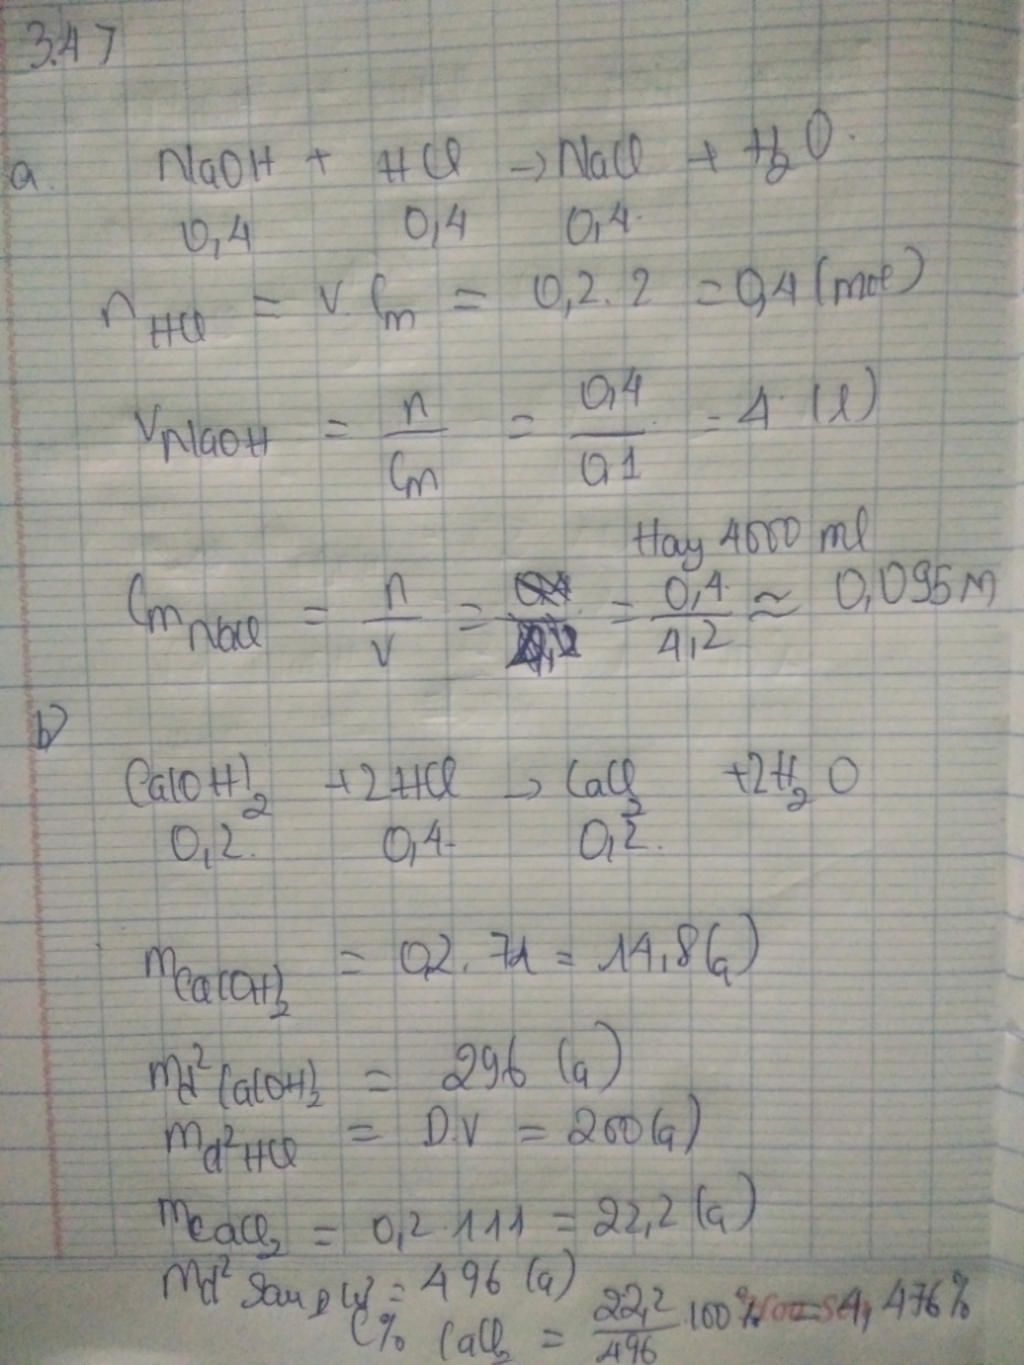 3.47
a. NaOH + HCl → NaCl + H₂O.
0,4 0,4 0,4.
n HCl = V. Cm = 0,2.2 = 0,4 (mol)
V NaOH = n/Cm = 0,4/0,1 = 4 (l)
Hay 4000 ml
Cm NaCl = n/V = = 0,4/4,2 ≈ 0,095M
b)
Ca(OH)₂ + 2HCl → CaCl₂ + 2H₂O
0,2. 0,4 0,2.
m Ca(OH)₂ = 0,2. 74 = 14,8 (g)
md² Ca(OH)₂ = 296 (g)
md² HCl = D.V = 200 (g)
m CaCl₂ = 0,2.111 = 22,2 (g)
md² sau = 496 (g)
C% CaCl₂ = 22,2/496 .100% = 4,476%